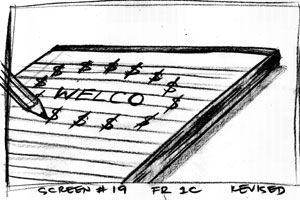 $ $ $ $ $
$ WELCO $
$ $ $ $ $
SCREEN # 19 FR 1C REVISED